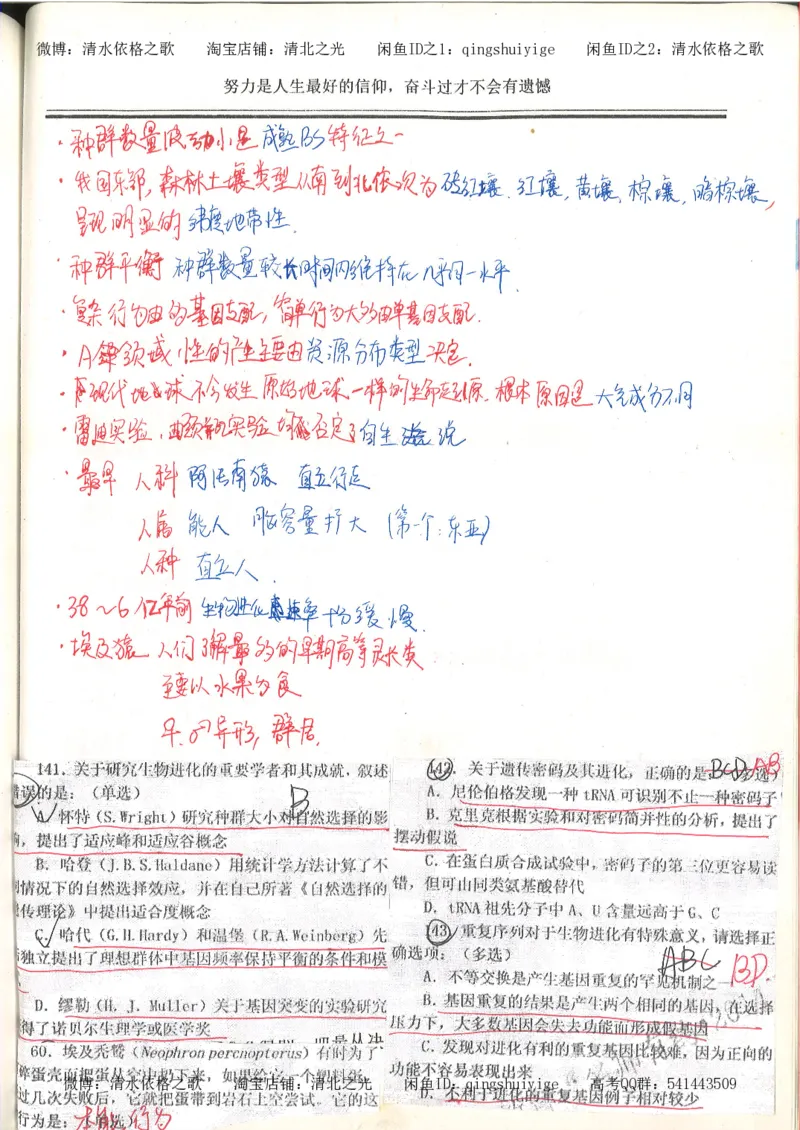 微博：清水依格之歌 淘宝店铺：清北之光 闲鱼ID之1：qingshuiyige 闲鱼ID之2：清水依格之歌
努力是人生最好的信仰，奋斗过才不会有遗憾
·种群数量波动小是成熟BS特征之一
·我国东部，森林土壤类型从南到北依次为砖红壤、红壤，黄壤，棕壤，暗棕壤，
呈现明显的纬度地带性．
·种群平衡 种群数量较长时间内维持在几乎同一水平．
·复杂行为由多基因支配，简单行为大多由单基因支配．
·领域性的产生主要由资源分布类型决定．
·现代地球不会发生原始地球一样的生命起源．根本原因是大气成分不同
·雷迪实验，曲颈瓶实验均否定了自生说
·最早 人科 阿法南猿 直立行走
人属 能人 脑容量扩大 (第一个：东亚)
人种 直立人．
·38～6亿年前 生物进化速率十分缓慢．
·埃及猿 人们了解最多的早期高等灵长类
主要以水果为食
♀．♂异形，群居．
141．关于研究生物进化的重要学者和其成就，叙述
错误的是：（单选） B
A．怀特（S.Wright）研究种群大小对自然选择的影
响，提出了适应峰和适应谷概念
B．哈登（J.B.S.Haldane）用统计学方法计算了不
同情况下的自然选择效应，并在自己所著《自然选择的
遗传理论》中提出适合度概念
C．哈代（G.H.Hardy）和温堡（R.A.Weinberg）先
后独立提出了理想群体中基因频率保持平衡的条件和模
D．缪勒（H. J. Muller）关于基因突变的实验研究
得了诺贝尔生理学或医学奖
60．埃及秃鹫（Neophron percnopterus）有时为了
碎蛋壳而把蛋从空中扔下来，如果给它一个塑料蛋，
过几次失败后，它就把蛋带到岩石上空尝试。它的这
行为是： 本能行为
142．关于遗传密码及其进化，正确的是：（多选） BCD AB
A．尼伦伯格发现一种 tRNA 可识别不止一种密码子
B．克里克根据实验和对密码简并性的分析，提出了
摆动假说
C．在蛋白质合成试验中，密码子的第三位更容易读
错，但可由同类氨基酸替代
D．tRNA 祖先分子中 A、U 含量远高于 G、C
143．重复序列对于生物进化有特殊意义，请选择正
确选项：（多选） ABC BD
A．不等交换是产生基因重复的罕见机制之一
B．基因重复的结果是产生两个相同的基因，在选择
压力下，大多数基因会失去功能而形成假基因
C．发现对进化有利的重复基因比较难，因为正向的
功能不容易表现出来
D．不利于进化的重复基因例子相对较少
微博：清水依格之歌 淘宝店铺：清北之光 闲鱼ID：qingshuiyige 高考QQ群：541443509